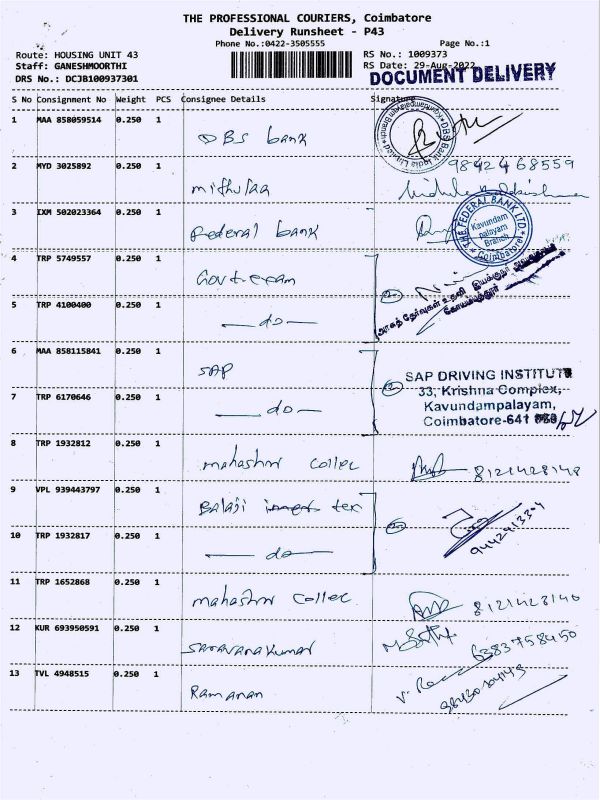 THE PROFESSIONAL COURIERS, Coimbatore
Delivery Runsheet - P43
Phone No.:0422-3505555
Page No.:1
Route: HOUSING UNIT 43
RS No.: 1009373
Staff: GANESHMOORTHI
RS Date: 29-Aug-2022
DRS No.: DCJB100937301
DOCUMENT DELIVERY
S No Consignment No Weight PCS Consignee Details Signature
1 MAA 858059514 0.250 1
DBS bank
2 MYD 3025892 0.250 1 9842468559
mithulaa
3 IXM 502023364 0.250 1
Federal bank
THE FEDERAL BANK LTD.
Kavundam
palayam
Branch
Coimbatore
4 TRP 5749557 0.250 1
Govt exam
5 TRP 4100400 0.250 1
do
6 MAA 858115841 0.250 1
SAP
SAP DRIVING INSTITUTE
33, Krishna Complex,
Kavundampalayam,
Coimbatore-641
7 TRP 6170646 0.250 1
do
8 TRP 1932812 0.250 1
mahashri collec 8121428148
9 VPL 939443797 0.250 1
Balaji tex
10 TRP 1932817 0.250 1
do
11 TRP 1652868 0.250 1
mahashri collec
12 KUR 693950591 0.250 1
Saravanakumar 6383758450
13 TVL 4948515 0.250 1
Ramanan